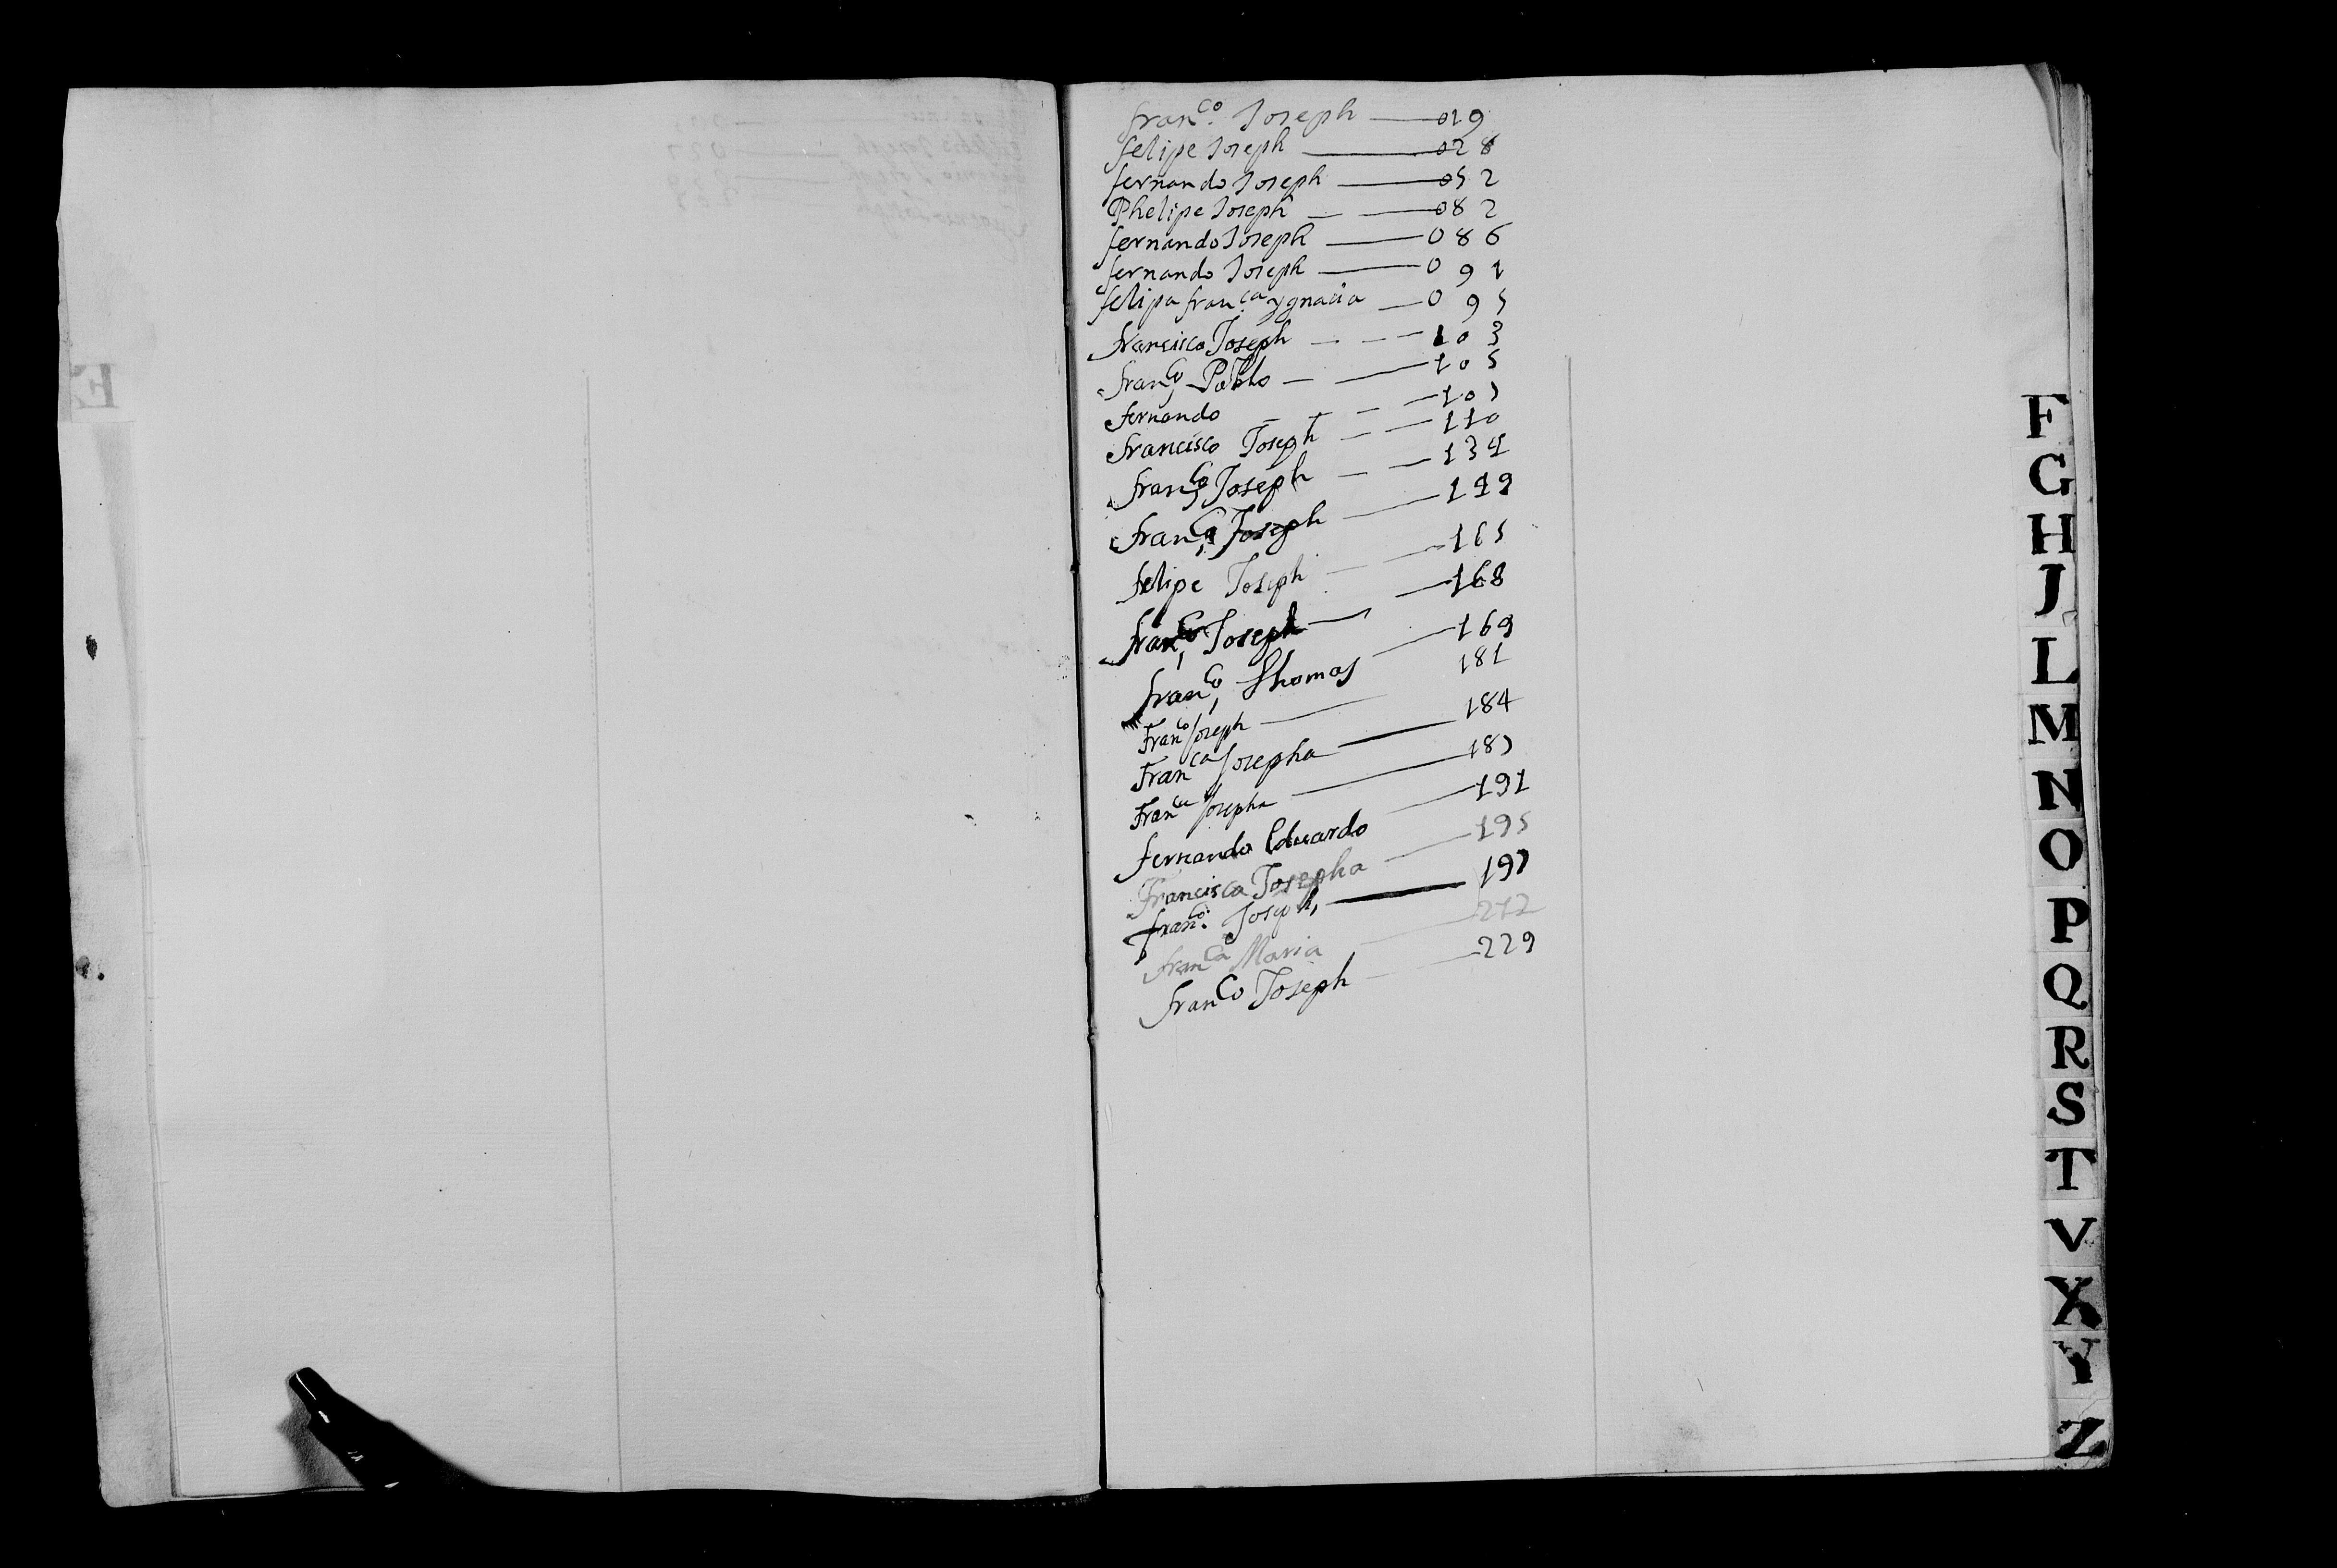 fran^co. Joseph — 019
felipe Joseph — 028
fernando Joseph — 052
Phelipe Joseph — — 082
fernando Joseph — 086
fernando Joseph — 091
felipa fran^ca ygnacia — 095
Francisco Joseph — - — 103
fran^co Pablo — — 105
fernando — — — — 107
Francisco Joseph — — 110
fran^co Joseph — — 134
fran^ca Joseph — 149
felipe Joseph — — 165
fran^co Joseph — — 168
fran^co Thomas — 169
Fran^co Joseph — 181
Fran^ca Josepha — 184
Fran^ca Josepha — 187
fernando Eduardo — 191
Francisca Josepha — 195
fran^co: Joseph, — 197
fran^ca Maria — 212
fran^co Joseph — — 229
F
G
H
J
L
M
N
O
P
Q
R
S
T
V
X
Y
Z